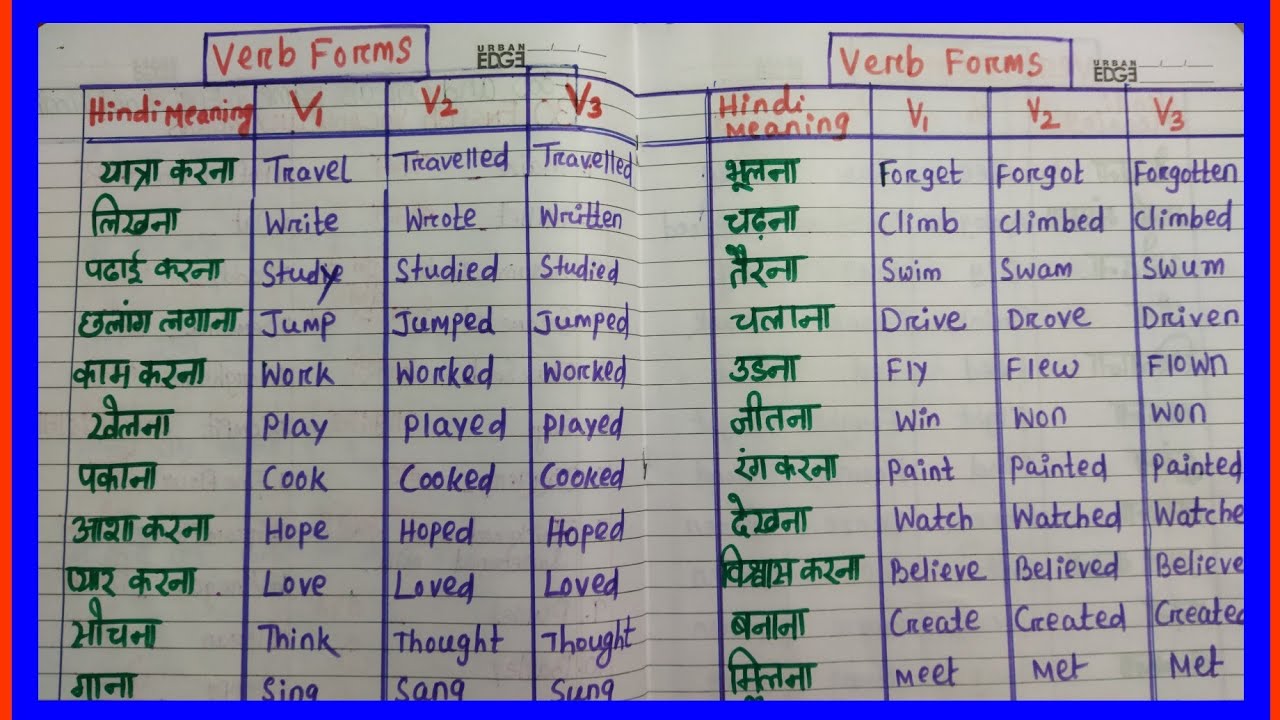 Verb Forms
URBAN EDGE
Hindi Meaning V1 V2 V3
यात्रा करना Travel Travelled Travelled
लिखना Write Wrote Written
पढाई करना Study Studied Studied
छलांग लगाना Jump Jumped Jumped
काम करना Work Worked Worked
खेलना Play Played Played
पकाना Cook Cooked Cooked
आशा करना Hope Hoped Hoped
प्यार करना Love Loved Loved
सोचना Think Thought Thought
गाना Sing Sang Sung
Verb Forms
URBAN EDGE
Hindi Meaning V1 V2 V3
भूलना Forget Forgot Forgotten
चढ़ना Climb Climbed Climbed
तैरना Swim Swam Swum
चलाना Drive Drove Driven
उडना Fly Flew Flown
जीतना Win Won Won
रंग करना Paint Painted Painted
देखना Watch Watched Watche
विश्वास करना Believe Believed Believe
बनाना Create Created Created
मिलना Meet Met Met